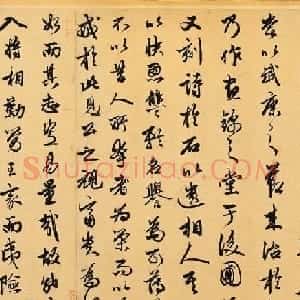 嘗以武康之節来治於
乃作晝錦之堂于後圃
又刻詩於石以遺相人其
以快恩讐矜名譽為可薄
不以昔人所夸者為榮而以
戒於此見公之視富貴為
如而其志豈易量哉故能
入將相勤勞王家而夷險
Shufaziliao.com